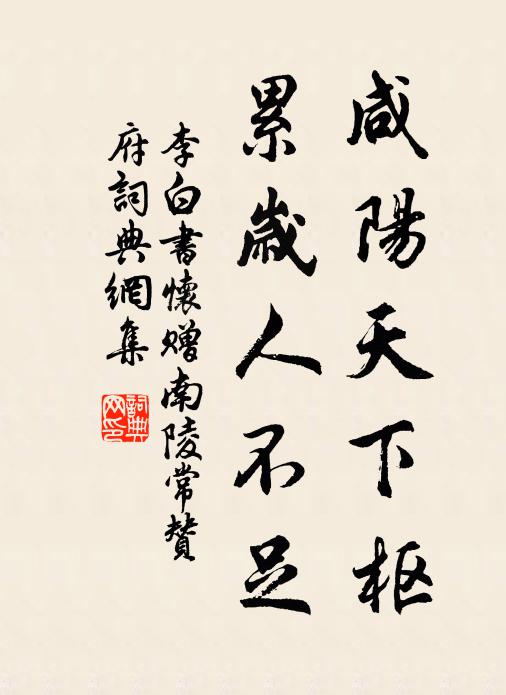 咸陽天下枢
累歲人不足
李白書懷贈南陵常贊
府詞典網集
詞典網印